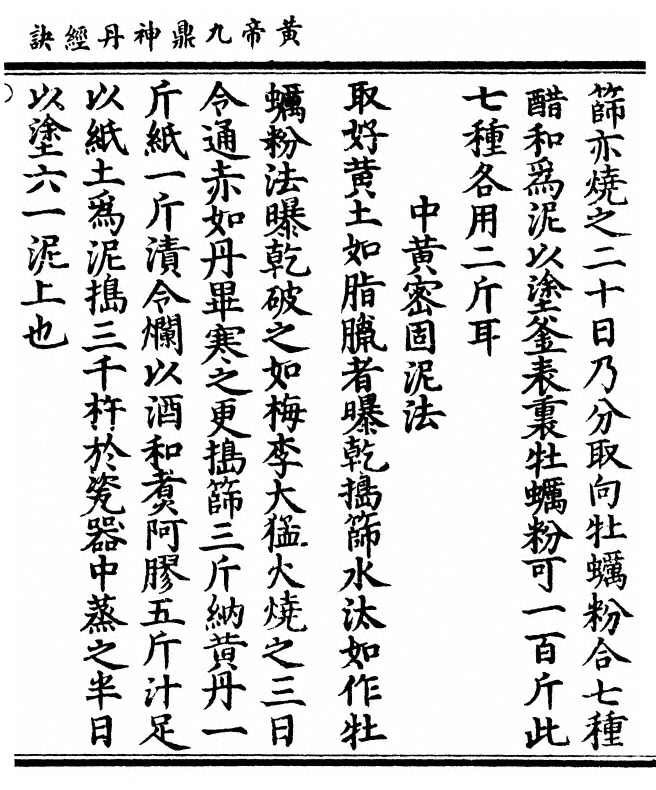 黃帝九鼎神丹經訣
篩亦燒之二十日乃分取向牡蠣粉合七種
醋和爲泥以塗釜表裏牡蠣粉可一百斤此
七種各用二斤耳
中黃密固泥法
取好黃土如脂臘者曝乾搗篩水汰如作牡
蠣粉法曝乾破之如梅李大猛火燒之三日
令通赤如丹畢寒之更搗篩三斤納黃丹一
斤紙一斤漬令爛以酒和煮阿膠五斤計足
以紙土爲泥搗三千杵於瓷器中蒸之半日
以塗六一泥上也